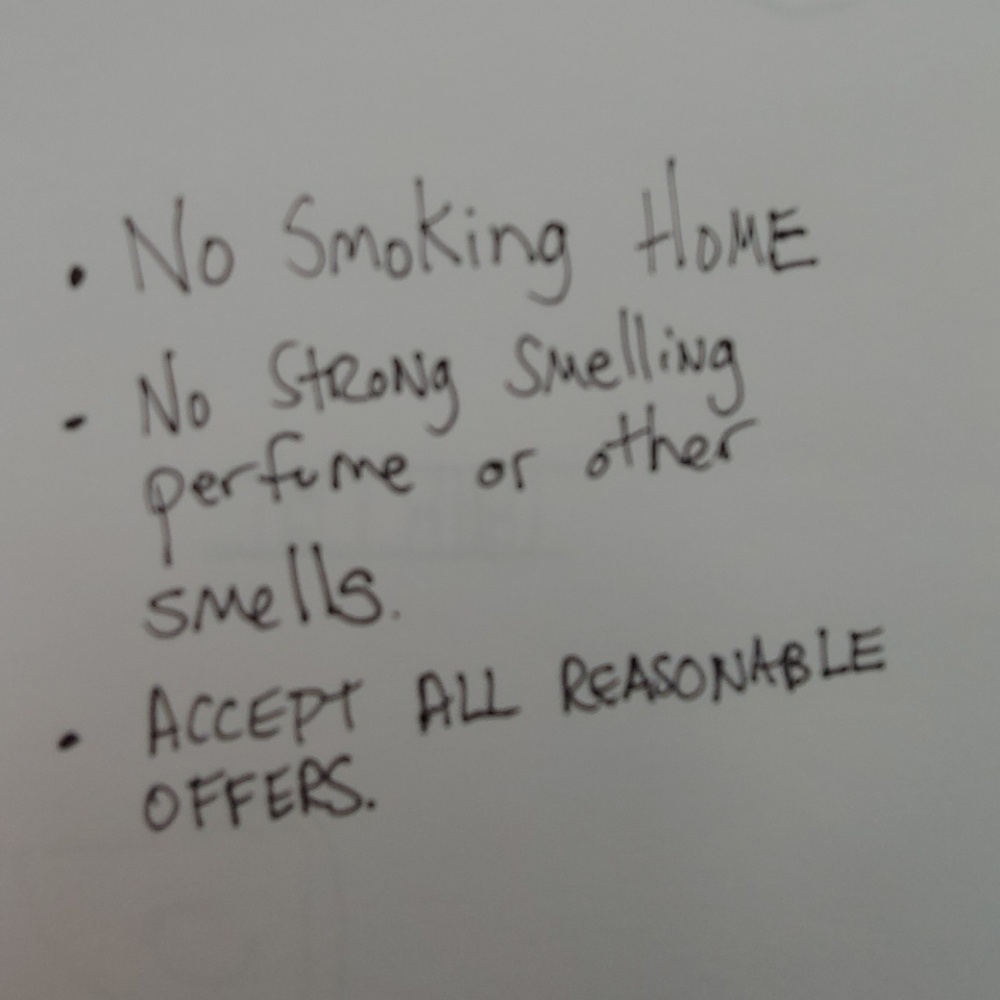 • No Smoking HOME
- No STRONG Smelling
perfume or other
smells.
• ACCEPT ALL REASONABLE
OFFERS.